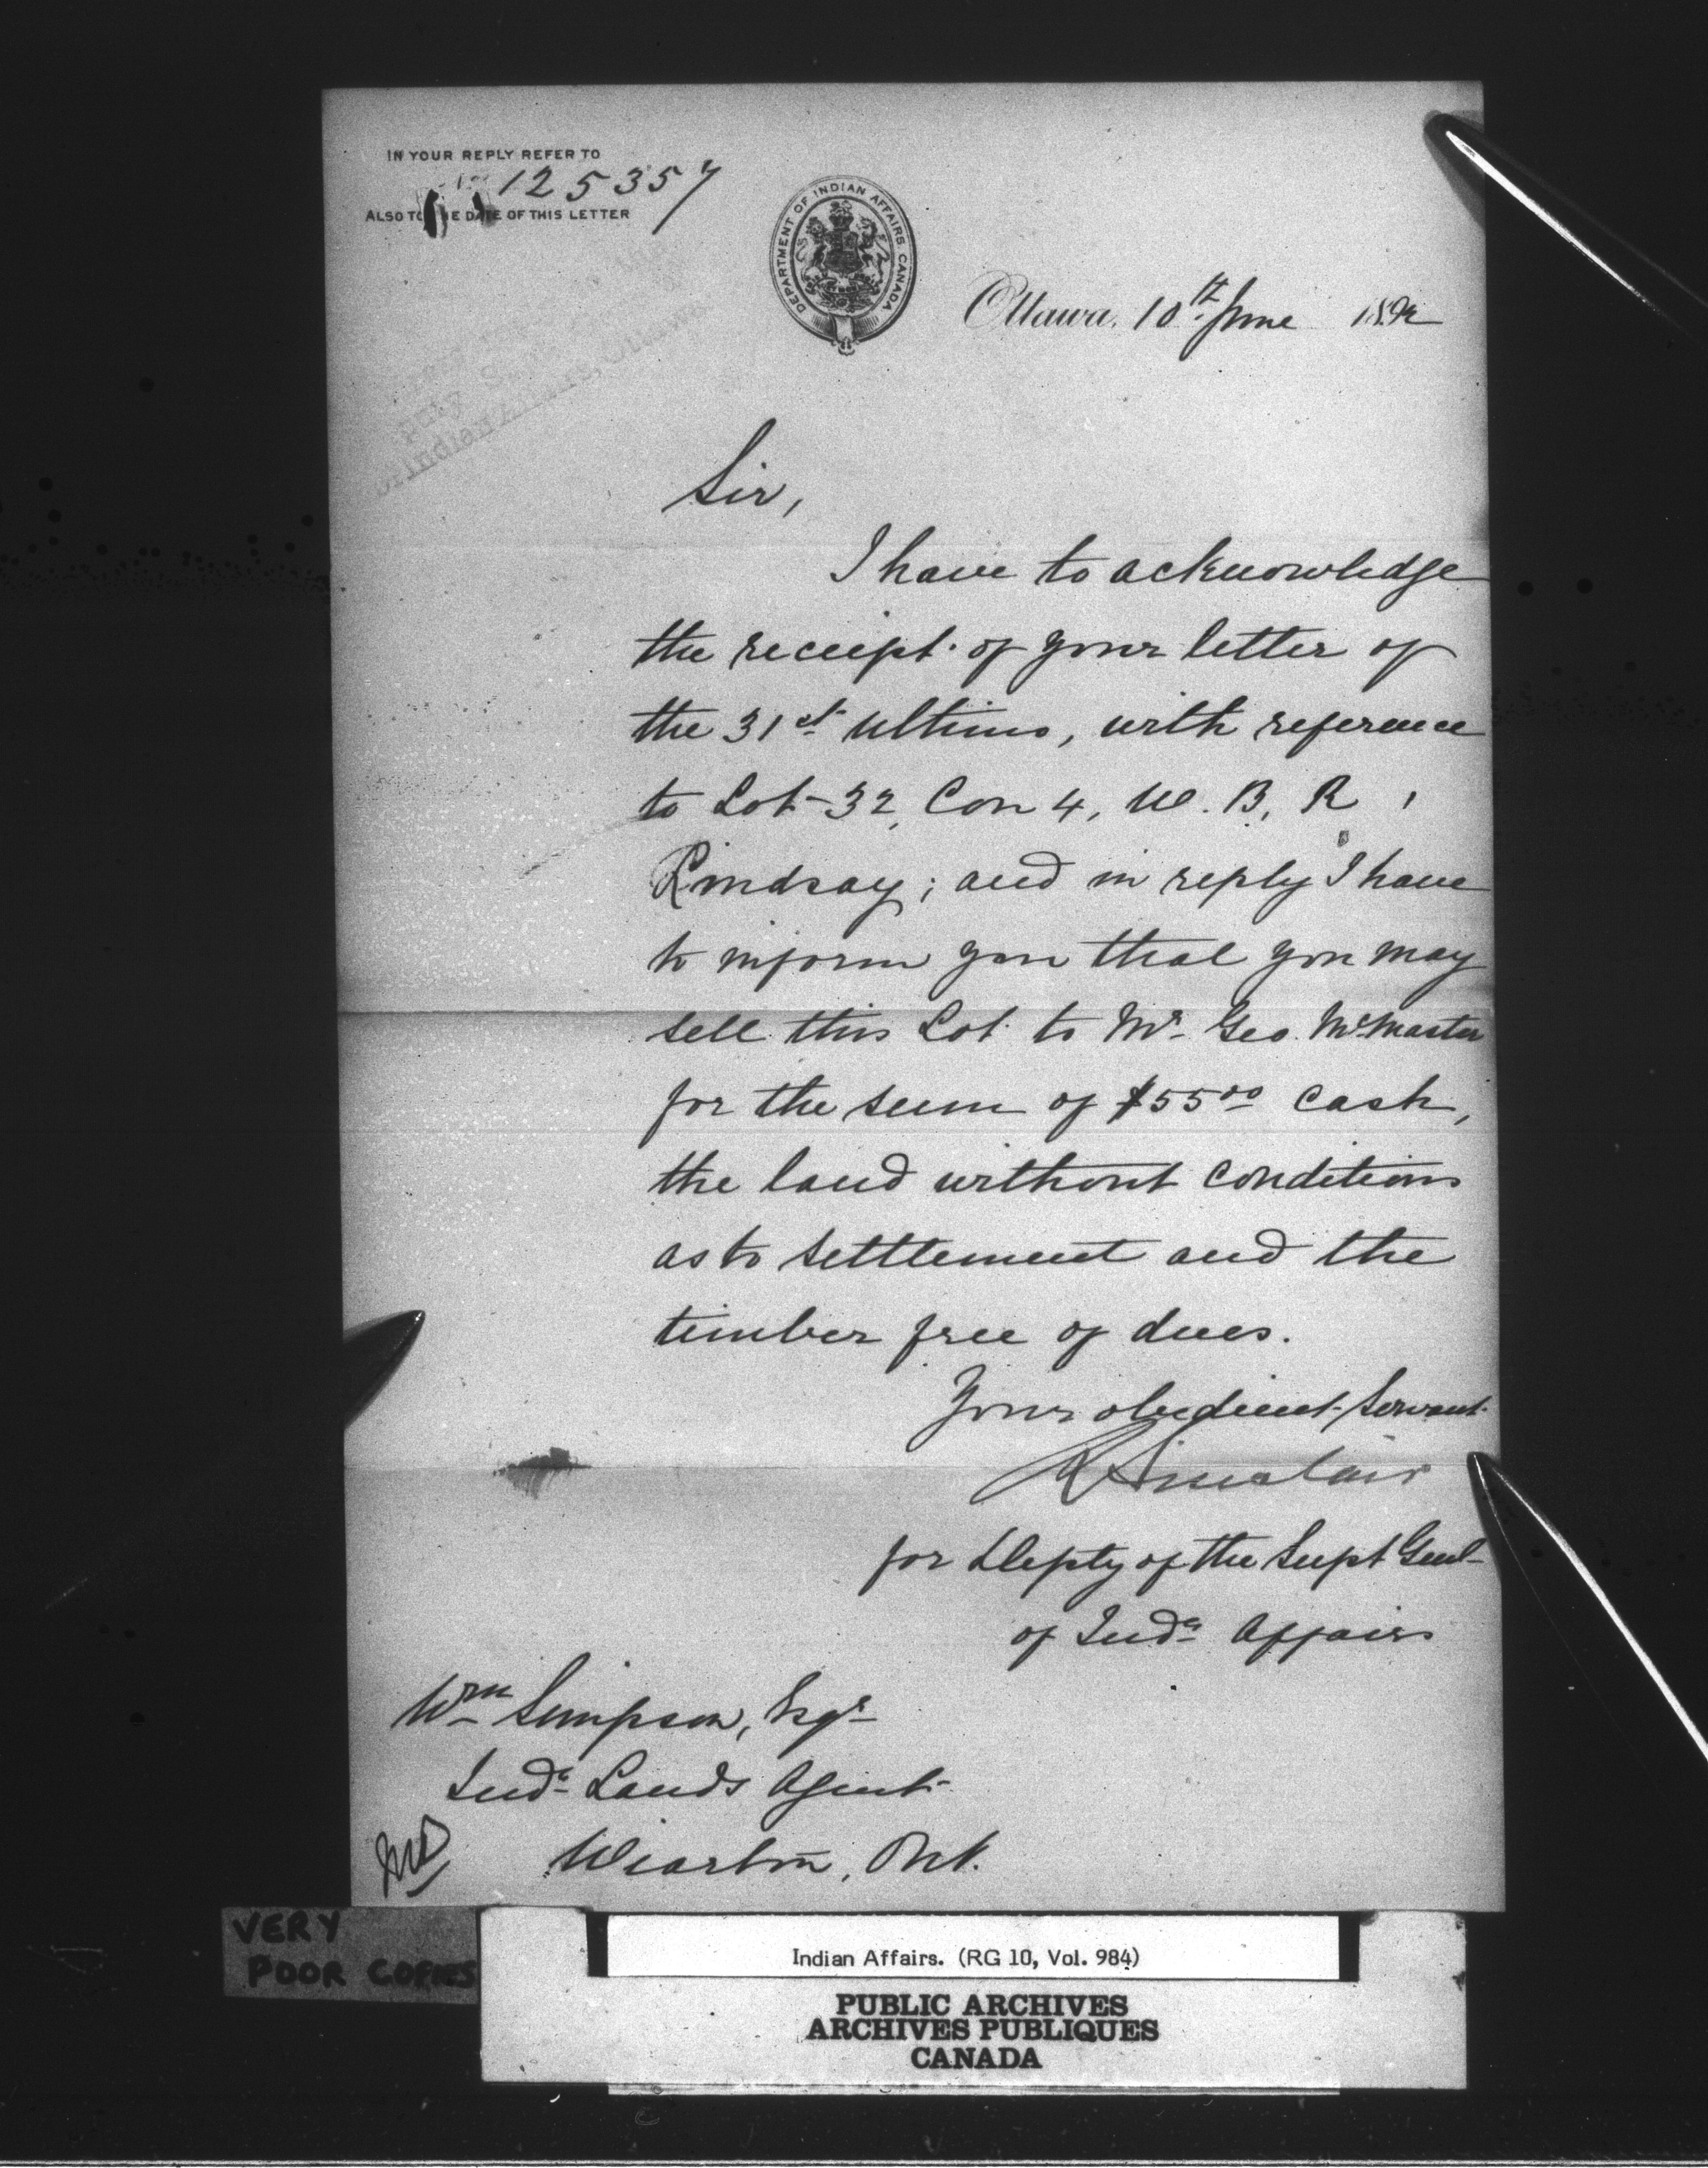 IN YOUR REPLY REFER TO
125357
ALSO TO THE DATE OF THIS LETTER
DEPARTMENT OF INDIAN AFFAIRS. CANADA
Ottawa, 10th June 1892
Sir,
I have to acknowledge
the receipt of your letter of
the 31st ultimo, with reference
to Lot 32, Con 4, W. B, R,
Lindsay; and in reply I have
to inform you that you may
sell this Lot to Mr Geo. McMaster
for the sum of $55.00 cash,
the land without conditions
as to settlement and the
timber free of dues.
Your obedient Servant
R Sinclair
for Depty of the Supt Genl
of Indn Affairs
Wm Simpson, Esqr
Indn Lands Agent
Wiarton, Ont.
VERY
POOR COPIES
Indian Affairs. (RG 10, Vol. 984)
PUBLIC ARCHIVES
ARCHIVES PUBLIQUES
CANADA